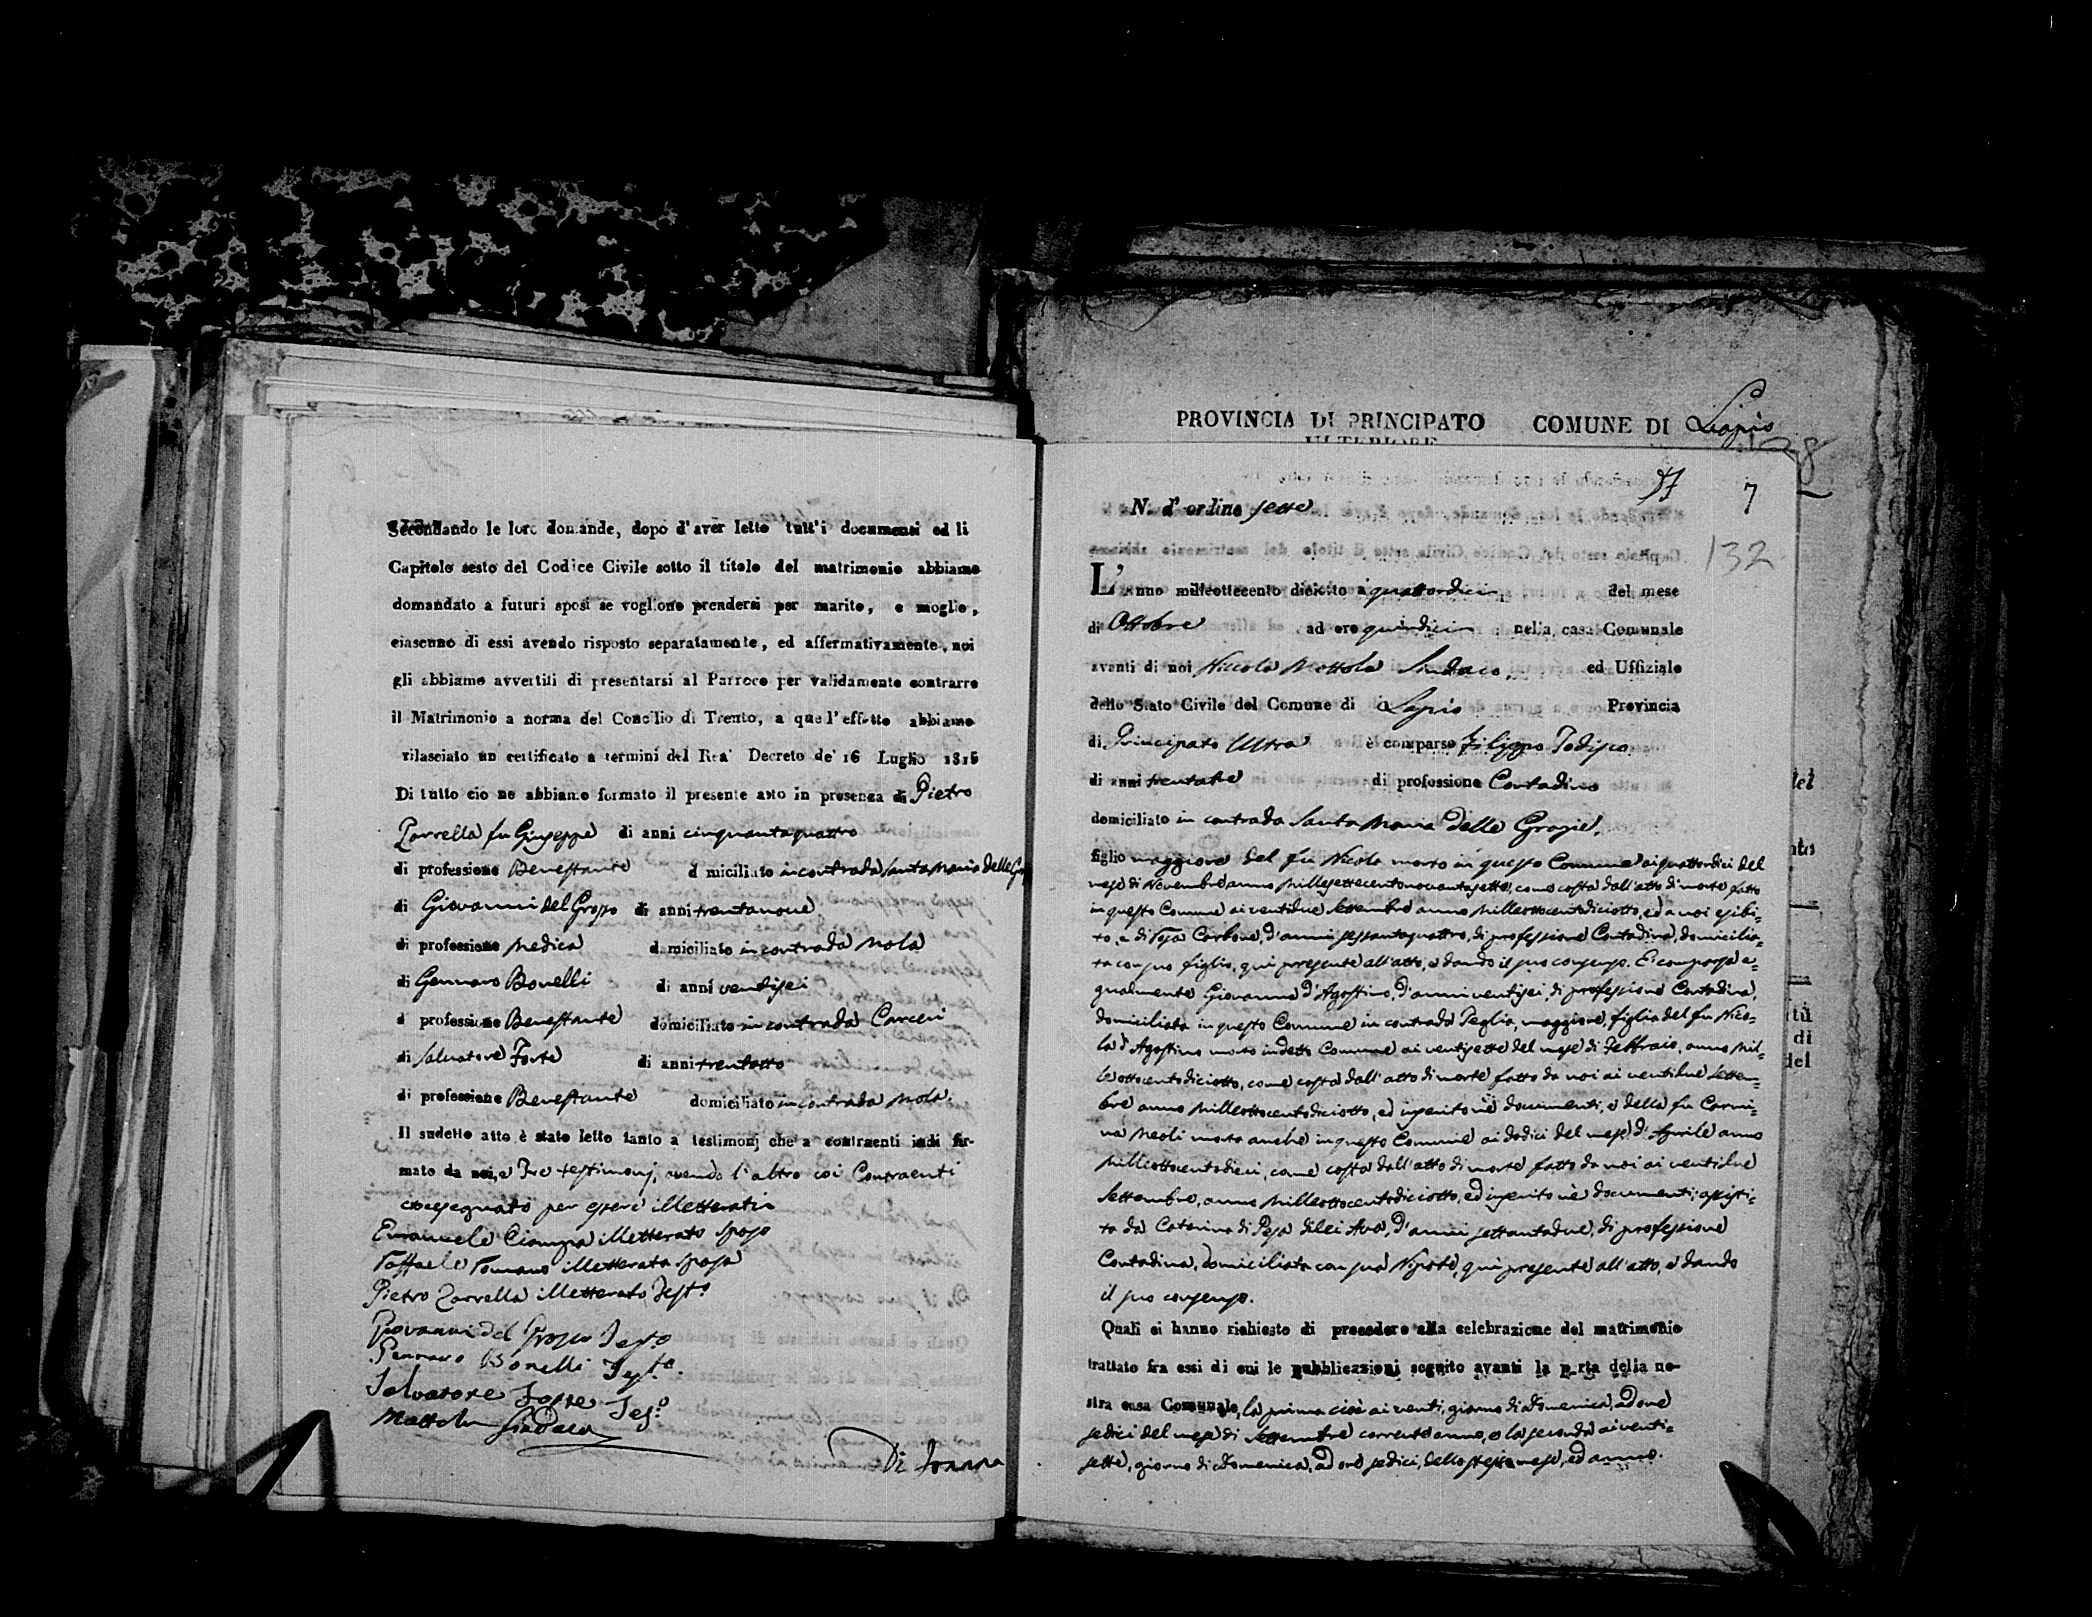 Secondando le loro domande, dopo d'aver letto tutt'i documenti ed li
Capitolo sesto del Codice Civile sotto il titolo del matrimonio abbiamo
domandato a futuri sposi se vogliono prendersi per marito, e moglie,
ciascuno di essi avendo risposto separatamente, ed affermativamente, noi
gli abbiamo avvertiti di presentarsi al Parroco per validamente contrarre
il Matrimonio a norma del Concilio di Trento, a quel'effetto abbiamo
rilasciato un certificato a termini del Rea' Decreto de' 16 Luglio 1815
Di tutto cio ne abbiamo formato il presente atto in presenza di Pietro
Zarrella fu Giuseppe di anni cinquantaquattro
di professione Benestante domiciliato in contrada Santa Maria delle
di Giovanni del Grosso di anni trentanove
di professione Medico domiciliato in contrada Mola
di Gennaro Bonelli di anni ventisei
di professione Benestante domiciliato in contrada Carceri
di Salvatore Forte di anni trentotto
di professione Benestante domiciliato in contrada Mola.
Il sudetto atto è stato letto tanto a testimonj che a contraenti indi fir-
mato da noi, e Tre testimonj, avendo l'altro coi Contraenti
crocesegnato per essere illetterati
Emanuele Ciampa illetterato Sposo
Raffaele Romano illetterata Sposa
Pietro Zarrella illetterato Test.o
Giovanni del Grosso Test.o
Gennaro Bonelli Test.o
Salvatore Forte Tes.o
Mottola Sindaco
Di Ioanna
PROVINCIA DI PRINCIPATO COMUNE DI Lapio
ULTERIORE
7
N. d'ordine sette
132
L'anno milleottocento diciotto a quattordici del mese
di Ottobre ad ore quindici nella casa Comunale
avanti di noi Niccola Mottola Sindaco, ed Uffiziale
dello Stato Civile del Comune di Lapio Provincia
di Principato Ultra è comparso Filippo Todisco
di anni trentatre di professione Contadino
domiciliato in contrada Santa Maria delle Grazie,
figlio maggiore del fu Nicola morto in questo Comune ai quattordici del
mese di Novembre anno millesettecentonovantasette, come costa dall'atto di morte fatto
in questo Comune ai ventidue Settembre anno milleottocentodiciotto, ed a noi esibi=
to, e di Rosa Carbone, d'anni sessantaquattro, di professione Contadina, domicilia=
ta con suo figlio, qui presente all'atto, e dando il suo consenso. E' comparsa e=
gualmente Giovanna d'Agostino, d'anni ventisei, di professione Contadina,
domiciliata in questo Comune in contrada Teglia, maggiore, figlia del fu Nico=
la d'Agostino morto in detto Comune ai ventisette del mese di Febbraio, anno mil=
leottocentodiciotto, come costa dall'atto di morte fatto da noi ai ventidue Settem=
bre anno milleottocentodiciotto, ed inserito ne' documenti, e della fu Carmi=
na Meoli morta anche in questo Comune ai dodici del mese di Aprile anno
milleottocentodieci, come costa dall'atto di morte fatto da noi ai ventidue
Settembre, anno milleottocentodiciotto, ed inserito ne' documenti; assisti=
ta da Catarina di Pesa di lei Ava, d'anni settantadue, di professione
Contadina, domiciliata con sua Nipote, qui presente all'atto, e dando
il suo consenso.
Quali ci hanno richiesto di procedere alla celebrazione del matrimonio
trattato fra essi di cui le pubblicazioni seguito avanti la porta della no-
stra casa Comunale, la prima cioè ai venti, giorno di Domenica, ad ore
sedici del mese di Settembre corrente anno, e la seconda ai venti=
sette, giorno di Domenica, ad ore sedici, dello stesso mese, ed anno.